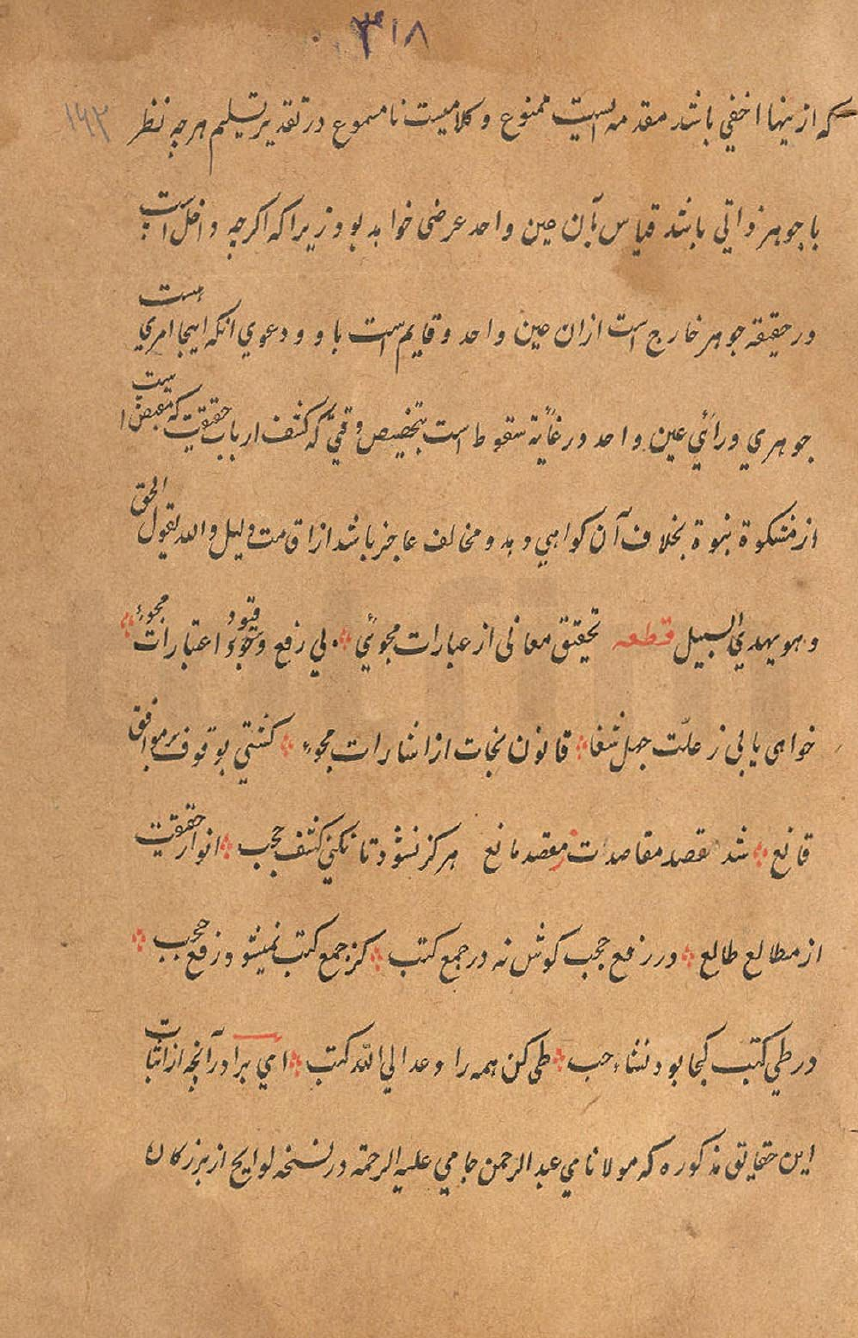 ۳۱۸
۱۶۲
که ازینها اخفی باشد مقدمه ایست ممنوع و کلامیست نامسموع در تقدیر تسلیم هرچه نظر
با جوهر ذاتی باشد قیاس بآن عین واحد عرضی خواهد بود زیرا که اگرچه داخل است
در حقیقه جوهر خارج است ازان عین واحد و قایم است باو و دعوی انکه اینجا امری هست
جوهری ورائی عین واحد در غایة سقوط است بتخصیص وقتی که کشف ارباب حقیقت که مقتبس است
از مشکوة نبوة بخلاف آن کواهی دهد و مخالف عاجز باشد از اقامت دلیل والله یقول الحق
وهو یهدی السبیل قطعه تحقیق معانی از عبارات مجوئی بی رفع قیود و اعتبارات مجوئ
خواهی یابی ز علّت جهل شفا قانون نجات از اشارات مجوئ کشتی بوقوف بر مواقف
قانع شد قصد مقاصدت ز مقصد مانع هرکز نشود تا نکنی کشف حجب انوار حقیقت
از مطالع طالع در رفع حجب کوش نه در جمع کتب کز جمع کتب نمیشود رفع حجب
در طی کتب کجا بود نشاء حب طی کن همه را وعد الی الله و تب ای برادر آنچه از اثبات
این حقایق مذکوره که مولانامی عبد الرحمن جامی علیه الرحمة در نسخه لوایح از بزرکان